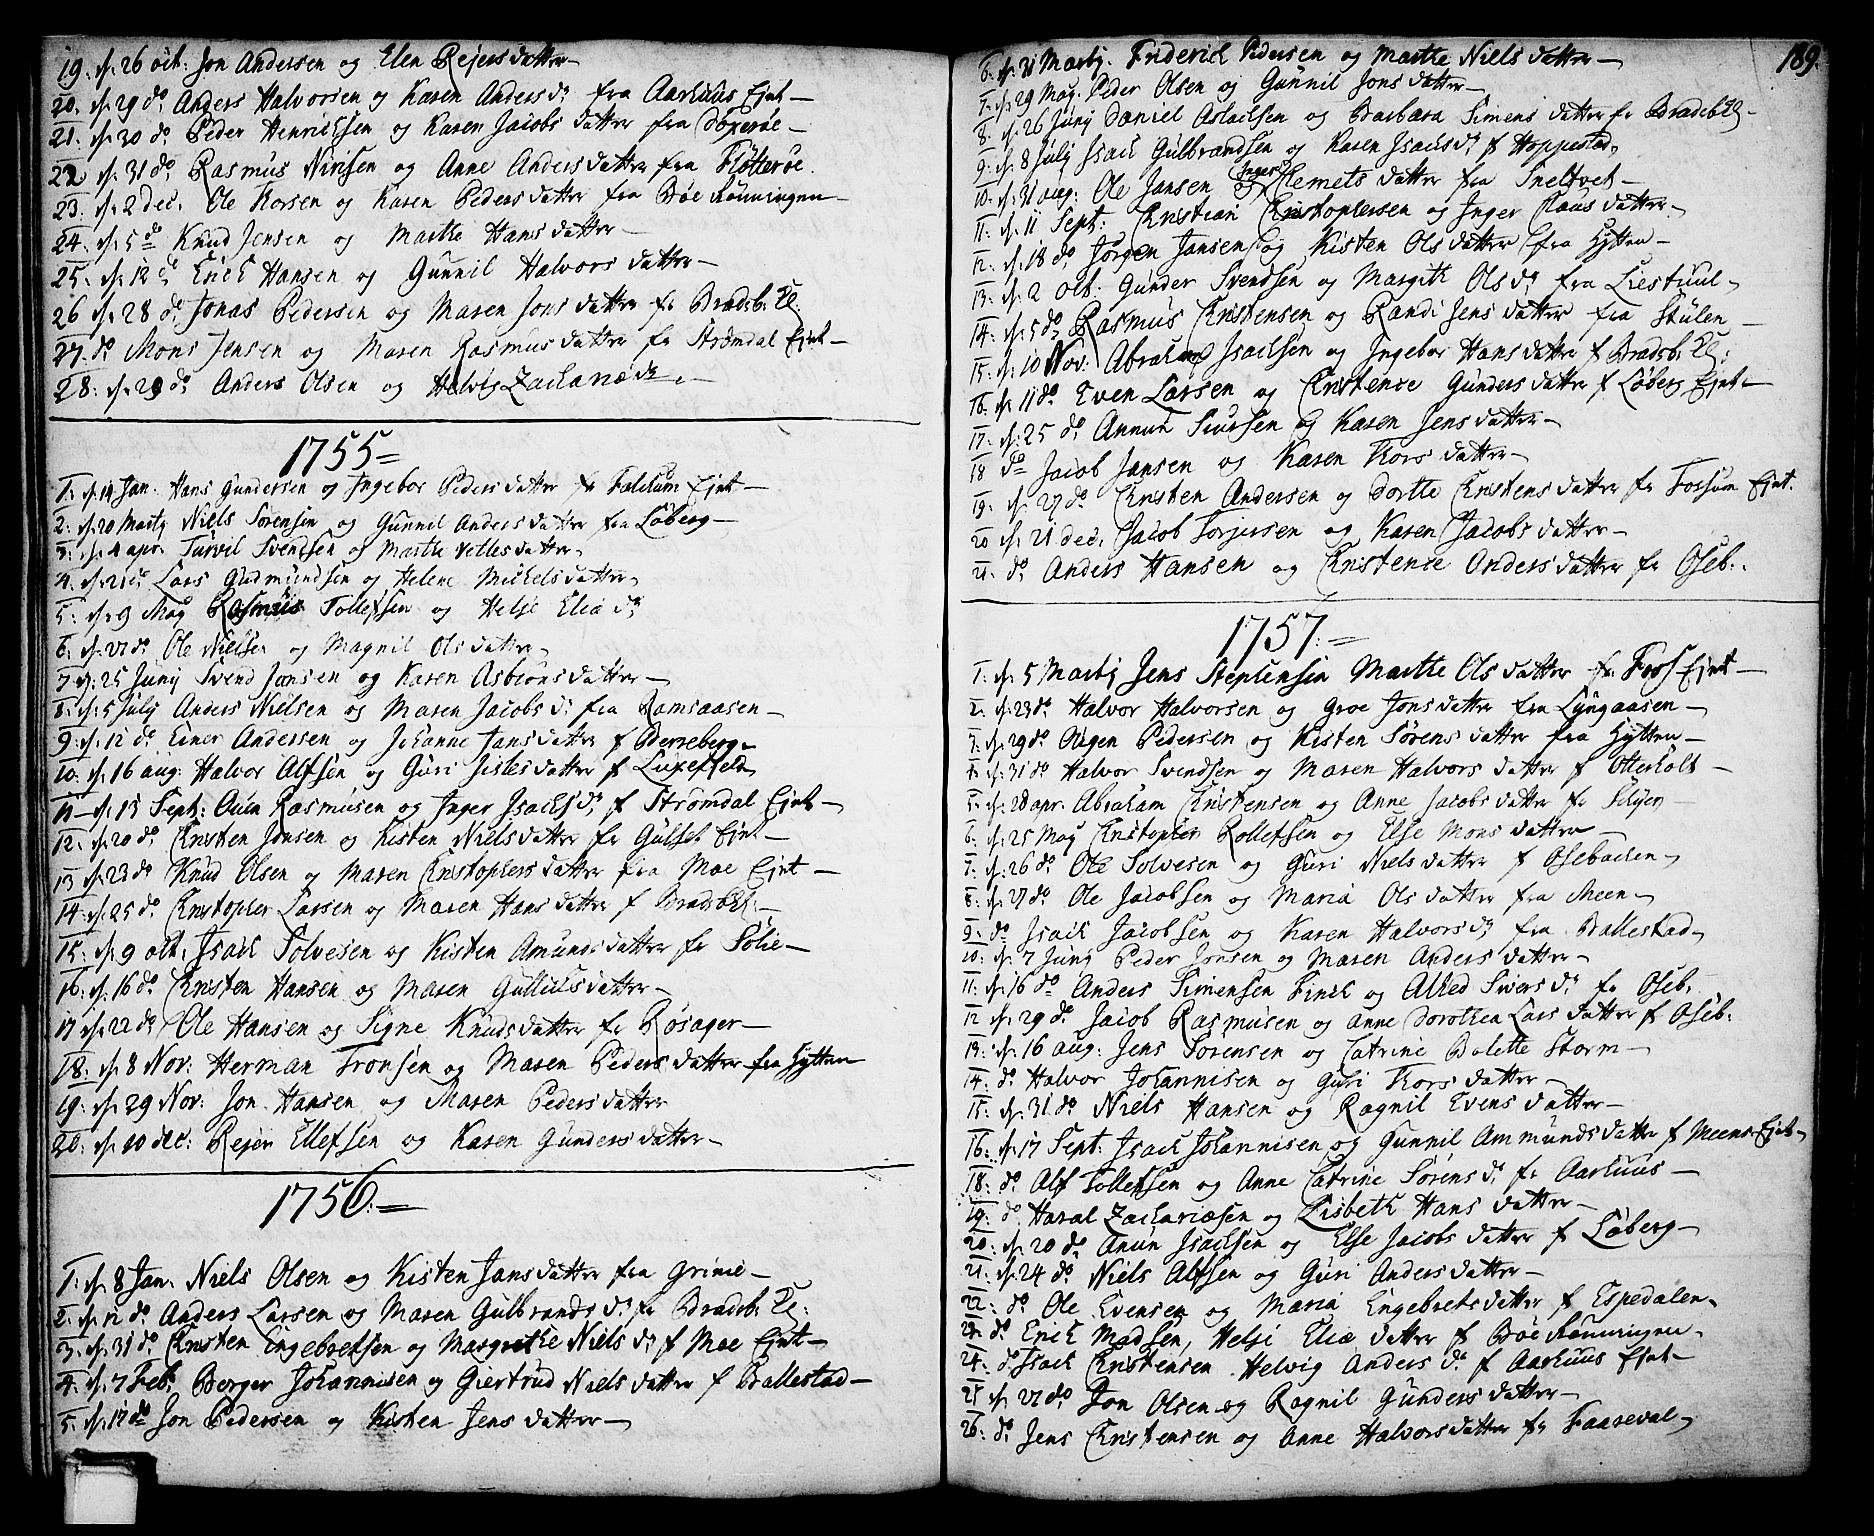 19. d. 26 oct: Jon Andersen og Elen Rejersdatter
20. d. 29 do Anders Halvorsen og Karen Anders d. fra Aarhuus Ejet
21. d. 30 do Peder Henrichsen og Karen Jacobs datter fra
22 d. 31 do Rasmus Nirisen og Anne Anders datter fra Flotterøe
23. d. 2 dec. Ole Thorsen og Karen Peders datter fra Bøe Rønningen
24. d. 5 do Knud Jensen og Marthe Hans datter
25. d. 12 do Erich Hansen og Gunnil Halvors datter
26 d. 28 do Jonas Pedersen og Maren Jons datter fr Bradsb: Kl:
27. do Mons Jensen og Maren Rasmus datter fr Strømdal Ejet
28. d. 29 do Anders Olsen og Helvig Zachariæ dr
1755
1. d. 14 Jan. Hans Gundersen og Ingebor Peders datter fr Falchum Ejet
2. d. 20 Martij Niels Sørensen og Gunnil Anders datter fra Løberg
3. d. 4 apr. Turvil Svendsen og Marthe Velles datter
4. d. 21 do Lars Gudmundsen og Helene Michels datter
5. d. 9 Maj Rasmus Tollefsen og Helje Eliæ dr
6. d. 27 do Ole Nielsen og Magnil Ols datter
7 d. 25 Junij Svend Jansen og Karen Asbiøns datter
8. d. 5 Julij Anders Nielsen og Maren Jacobs dr fra Ramsaasen
9. d. 12 do Einer Andersen og Johanne Jans datter f Berreberg
10. d. 16 aug: Halvor Alfsen og Guri Gisles datter f Luxefjeld
11 d. 13 Sept: Aun Rasmusen og Inger Isachs dr f Strømdal Ejet
12. d. 20 do Christen Jonsen og Kisten Niels datter fr Gulset Ejet
13 d. 23 do Knud Olsen og Maren Christophers datter fra Moe Ejet
14. d. 25 do Christopher Larsen og Maren Hans datter f Bradsb Kl:
15. d. 9 oct. Isach Solvesen og Kisten Amunds datter fr Sølie
16. d. 16 do Christen Hansen og Maren Gullichs datter
17 d. 22 do Ole Hansen og Signe Knuds datter fr Røsager
18. d. 8 Nov: Herman Tronsen og Maren Peders datter fra Hytten
19. d. 29 Nov: Jon Hansen og Maren Peders datter
20. d. 10 dec: Rejer Ellefsen og Karen Gunders datter
1756
1. d. 8 Jan: Niels Olsen og Kisten Jans datter fra Grinie
2. d. 12 do Anders Larsen og Maren Gulbrands dr fr Bradsb: Kl:
3. d. 31 do Christen Engebretsen og Margrethe Niels dr f Moe Ejet
4. d. 7 Feb. Berger Johannisen og Giertrud Niels datter f Ballestad
5. d. 17 do Jon Pedersen og Kisten Jens datter
189.
6. d. 21 Martij. Friderich Pedersen og Marthe Niels datter
7. d. 29 Maj. Peder Olsen og Gunnil Jons datter
8. d. 26 Junij Daniel Aslachsen og Barbara Simens datter fr Bradsb Kl
9. d. 8 Julij Isach Gulbrandsen og Karen Isachs dr f Hoppestad
10. d. 31 aug: Ole Jansen og Inger Clemets datter fra Sneltvet
11. d. 11 Sept: Christian Christophersen og Inger Claus datter
12. d. 18 do Jørgen Jansen og Kisten Ols datter fra Hytten
13. d. 2 oct: Gunder Svendsen og Margith Ols dr fra Liestuul
14. d. 5 do Rasmus Christensen og Randi Jens datter fra Stulen
15. d. 10 Nov: Abraham Isachsen og Ingebor Hans datter f Bradsb: Kl:
16. d. 11 do Even Larsen og Christence Gunders datter f Løberg Ejet
17. d. 25 do Annun Siursen og Karen Jens datter
18 do Jacob Jansen og Karen Thors datter
19. d. 27 do Christen Andersen og Dorthe Christens datter fr Fossum Ejet.
20 d. 21 dec. Jacob Torjersen og Karen Jacobs datter
21. do Anders Hansen og Christence Anders datter fr Oseb:
1757
1. d. 5 Martij Jens Stephensen Marthe Ols datter fr Fos Ejet
2. d. 23 do Halvor Halvorsen og Groe Jons datter fra Lyngaasen
3. d. 29 do Ougen Pedersen og Kisten Sørens datter fra Hytten
4. d. 31 do Halvor Svendsen og Maren Halvors datter f Otterholt
5. d. 28 apr. Abraham Christensen og Anne Jacobs datter fr Siljen
6. d. 25 Maj Christopher Rollefsen og Else Mons datter
7. d. 26 do Ole Solvesen og Guri Niels datter f Osebachen
8. d. 27 do Ole Jacobsen og Maria Ols datter fra Meen
9. do Isach Jacobsen og Karen Halvors dr fra Ballestad
10. d. 7 Junij Peder Jonsen og Maren Anders datter
11. d. 16 do Anders Simensen Finch og Alhed Sivers dr fr Oseb.
12 d. 29 do Jacob Rasmusen og Anne Dorothea Lars datter f Oseb:
13. d. 16 aug: Jens Sørensen og Catrine Bolette Storm
14. do Halvor Johannisen og Guri Thors datter
15. d. 31 do Niels Hansen og Ragnil Evens datter
16. d. 17 Sept: Isach Johannisen og Gunnil Ammunds datter f Meens Ejet
18. do Alf Tollefsen og Anne Catrine Sørens dr fr Aarhuus
19. do Haral Zachariæsen og Lisbeth Hans datter
20. d. 20 do Anun Isachsen og Else Jacobs datter f Løberg
21. d. 24 do Niels Alfsen og Guri Anders datter
22. do Ole Evensen og Maria Engebrets datter f Espedalen
23. do Erich Madsen, Helje Eliæ datter f Bøe Rønningen
24. do Isach Christensen Helvig Anders dr f Aarhuus Ejet
25 d. 27 do Jon Olsen og Ragnil Gunders datter
26. do Jens Christensen og Anne Halvors datter fr Faareval